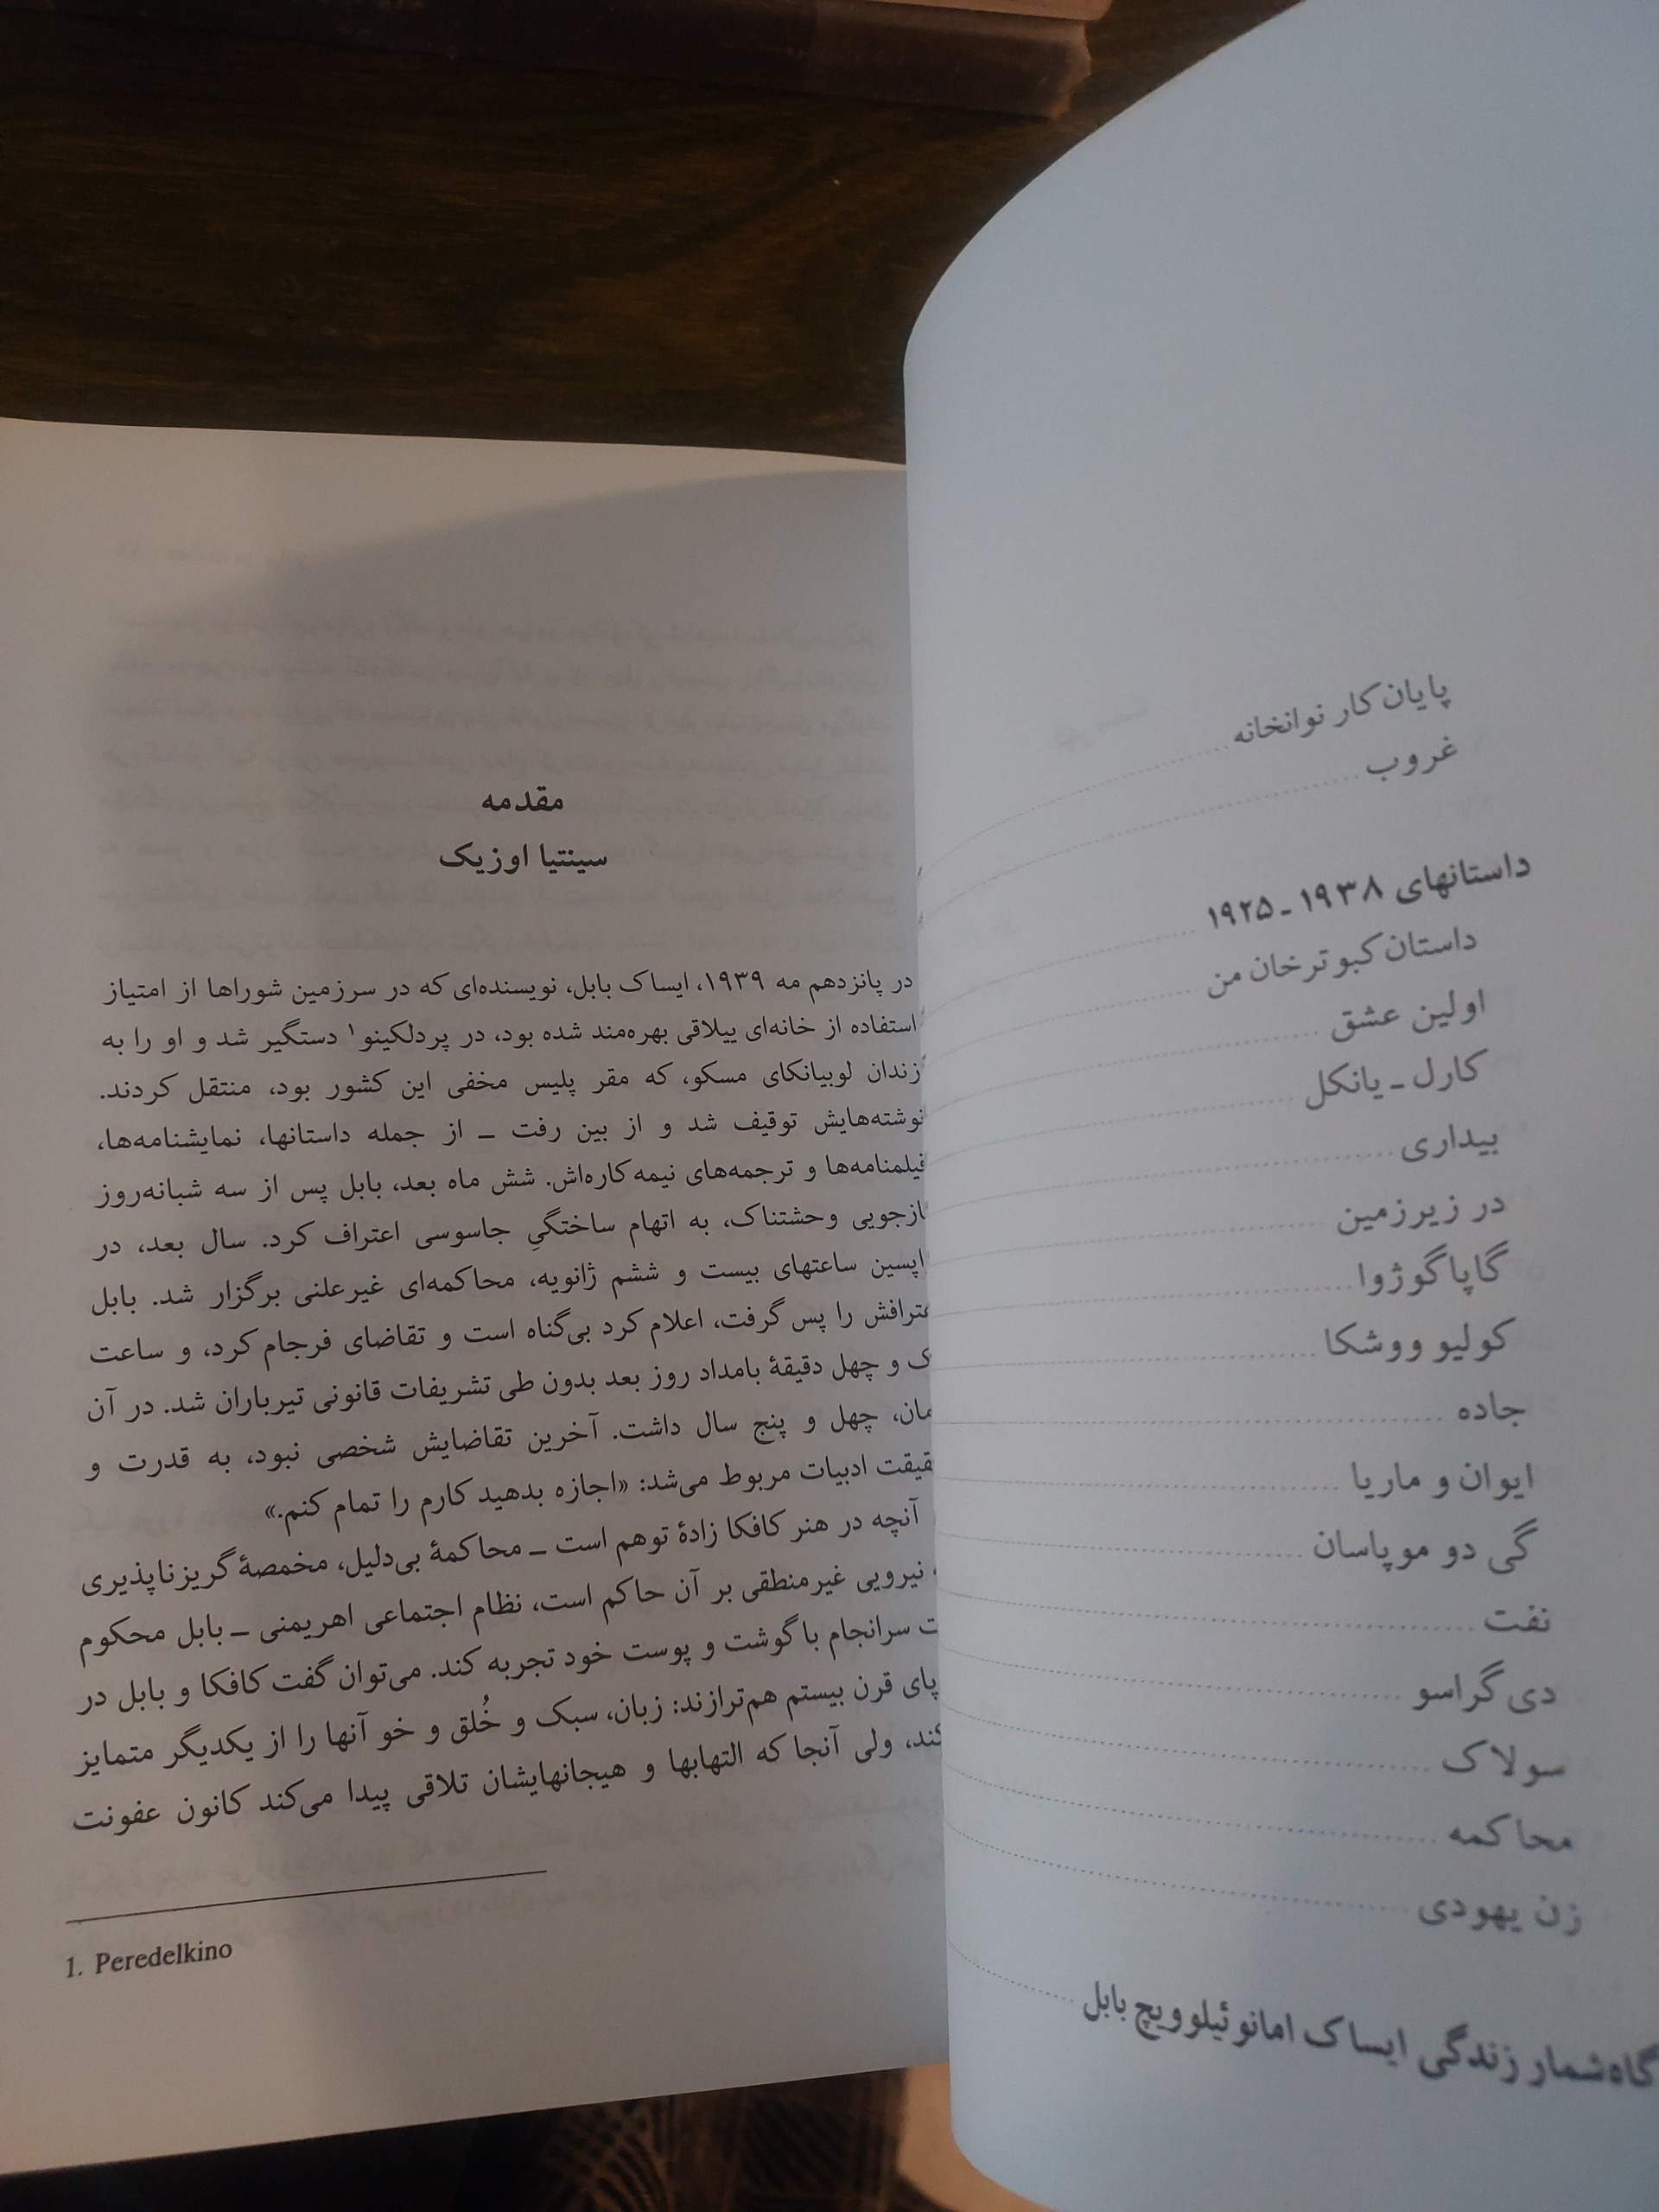 پایان کار نوانخانه
غروب
داستانهای ۱۹۳۸ ـ ۱۹۲۵
داستان کبوترخان من
اولین عشق
کارل ـ یانکل
بیداری
در زیرزمین
گاپاگوژوا
کولیو ووشکا
جاده
ایوان و ماریا
گی دو موپاسان
نفت
دی گراسو
سولاک
محاکمه
زن یهودی
گاه‌شمار زندگی ایساک امانوئیلوویچ بابل
مقدمه
سینتیا اوزیک
در پانزدهم مه ۱۹۳۹، ایساک بابل، نویسنده‌ای که در سرزمین شوراها از امتیاز
استفاده از خانه‌ای ییلاقی بهره‌مند شده بود، در پردلکینو۱ دستگیر شد و او را به
زندان لوبیانکای مسکو، که مقر پلیس مخفی این کشور بود، منتقل کردند.
نوشته‌هایش توقیف شد و از بین رفت ـ از جمله داستانها، نمایشنامه‌ها،
فیلمنامه‌ها و ترجمه‌های نیمه‌کاره‌اش. شش ماه بعد، بابل پس از سه شبانه‌روز
ازجویی وحشتناک، به اتهام ساختگیِ جاسوسی اعتراف کرد. سال بعد، در
اپسین ساعتهای بیست و ششم ژانویه، محاکمه‌ای غیرعلنی برگزار شد. بابل
عترافش را پس گرفت، اعلام کرد بی‌گناه است و تقاضای فرجام کرد، و ساعت
ک و چهل دقیقهٔ بامداد روز بعد بدون طی تشریفات قانونی تیرباران شد. در آن
مان، چهل و پنج سال داشت. آخرین تقاضایش شخصی نبود، به قدرت و
قیقت ادبیات مربوط می‌شد: «اجازه بدهید کارم را تمام کنم.»
آنچه در هنر کافکا زادهٔ توهم است ـ محاکمهٔ بی‌دلیل، مخمصهٔ گریزناپذیری
نیرویی غیرمنطقی بر آن حاکم است، نظام اجتماعی اهریمنی ـ بابل محکوم
ت سرانجام با گوشت و پوست خود تجربه کند. می‌توان گفت کافکا و بابل در
پای قرن بیستم هم‌ترازند: زبان، سبک و خُلق و خو آنها را از یکدیگر متمایز
کند، ولی آنجا که التهابها و هیجانهایشان تلاقی پیدا می‌کند کانون عفونت
1. Peredelkino